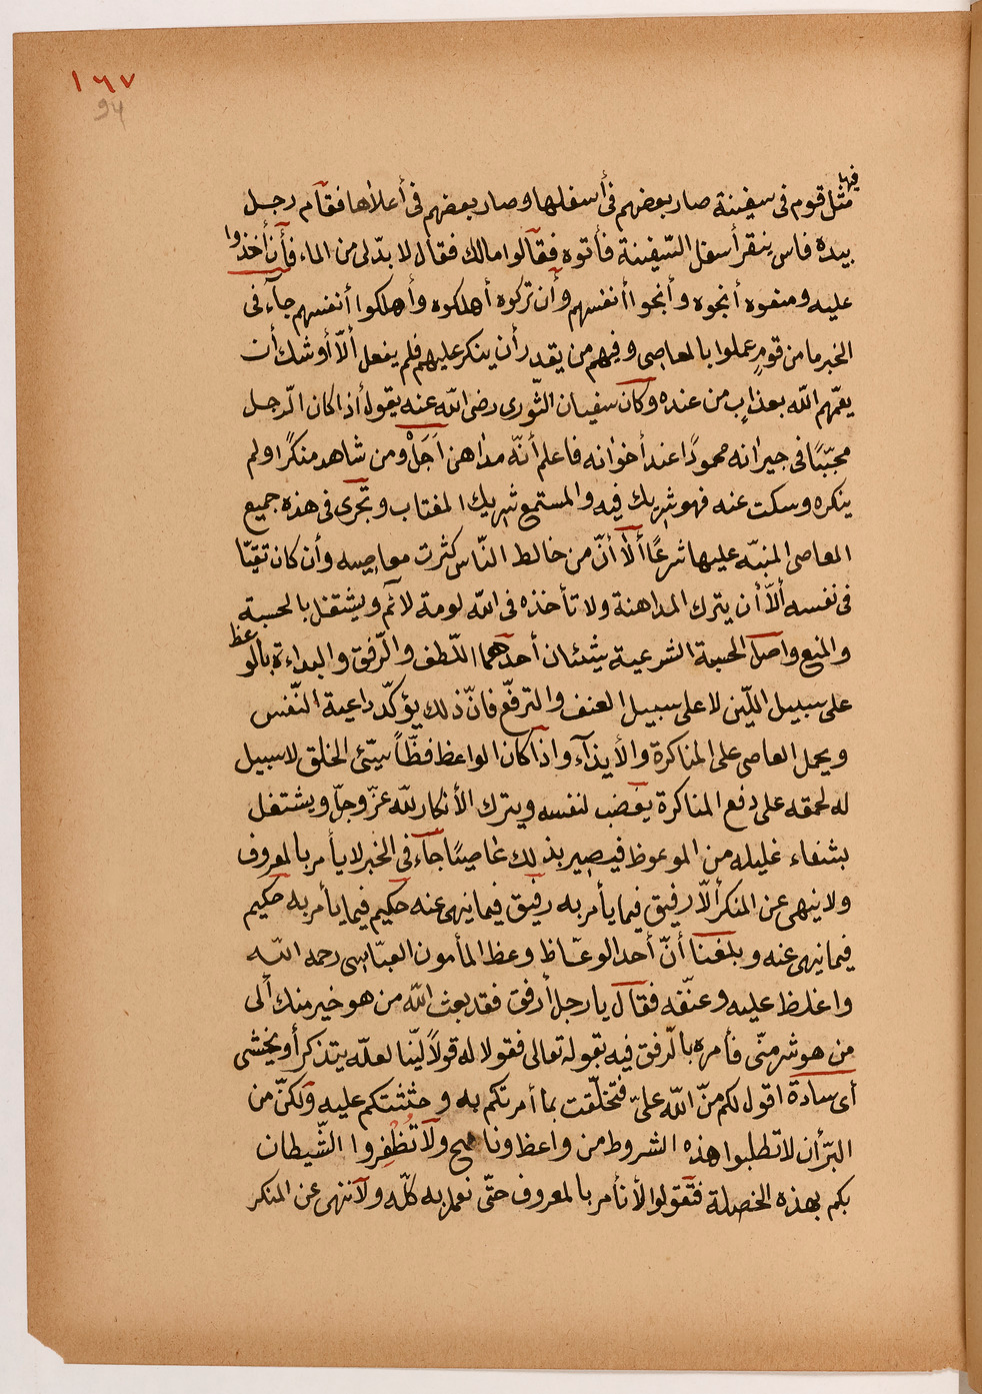 ١٦٧
94
فيها
مثل قوم فى سفينة صار بعضهم فى أسفلها وصار بعضهم فى أعلاها فقام رجل
بيده فاس ينقر أسفل السّفينة فأتوه فقالوا مالك فقال لا بدّ لى من الماء فأن أخذوا
عليه ومنعوه أنجوه وأنجوا أنفسهم وأن تركوه أهلكوه وأهلكوا أنفسهم جآء فى
الخبر ما من قومٍ عملوا بالمعاصى وفيهم من يقدر أن ينكر عليهم فلم يفعل ألاّ أوشك أن
يعمّهم الله بعذابٍ من عنده وكان سفيان الثورى رضى الله عنه يقول أذا كان الرّجل
محبّبًا فى جيرانه محمودًا عند أخوانه فاعلم أنّه مداهن أَجَلْ ومن شاهد منكرًا ولم
ينكره وسكت عنه فهو شريك فيه والمستمع شريك المغتاب وتجرى فى هذه جميع
المعاصى المنبّه عليها شرعًا ألا أنّ من خالط النّاس كثرت معاصيه وأن كان تقيّا
فى نفسه ألاّ أن يترك المداهنة ولا تأخذه فى الله لومة لائم ويشتغل بالحسبة
والمنع واصل الحسبة الشرعية شيئان أحدهما اللّطف والرّفق والبداءة بالوعظ
على سبيل اللّين لا على سبيل العنف والترفّع فانّ ذلك يؤكّد داعية النّفس
ويحمل العاصى على المناكرة والأيذآء واذا كان الواعظ فظّاً سيّئ الخلق لا سبيل
له لحمقه على دفع المناكرة يغضب لنفسه ويترك الأنكار لله عزّ وجلّ ويشتغل
بشفاء غليله من الموعوظ فيصير بذلك عاصيًا جآء فى الخبر لا يأمر بالمعروف
ولا ينهى عن المنكر ألاّ رفيق فيما يأمر به رفيق فيما ينهى عنه حكيم فيما يأمر به حكيم
فيما ينهى عنه وبلغنا أنّ أحد الوعّاظ وعظ المأمون العبّاسى رحمه الله
واغلظ عليه وعنّفه فقال يا رجل أرفق فقد بعث الله من هو خير منك ألى
من هو شر منّى فأمره بالرّفق فيه بقوله تعالى فقولا له قولاً ليّنا لعلّه يتذكر أو يخشى
أى سادة اقول لكم منّ الله علىّ فتخلّقت بما أمرتكم به وحثثتكم عليه ولكنّ من
البرّ أن لا تطلبوا هذه الشروط من واعظ وناصح ولا تُظْفِروا الشّيطان
بكم بهذه الخصلة فتقولوا لأنأمر بالمعروف حتّى نعمل به كلّه ولا ننهى عن المنكر